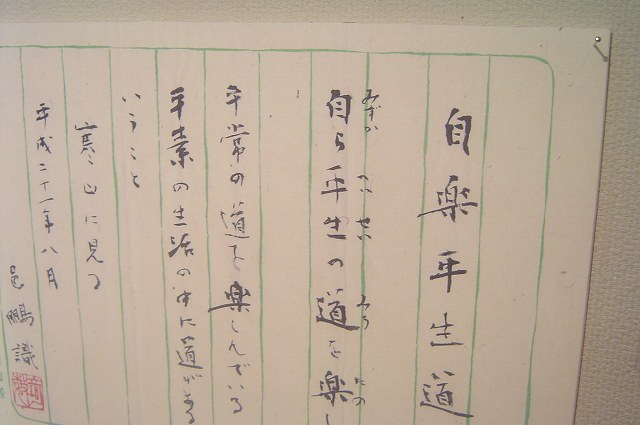 自楽平生道
みずか へいせい みち たの
自ら平生の道を楽し
平常の道を楽しんでいる
平素の生活の中に道がある
いうこと
寒山に見る
平成二十一年八月
鵬識